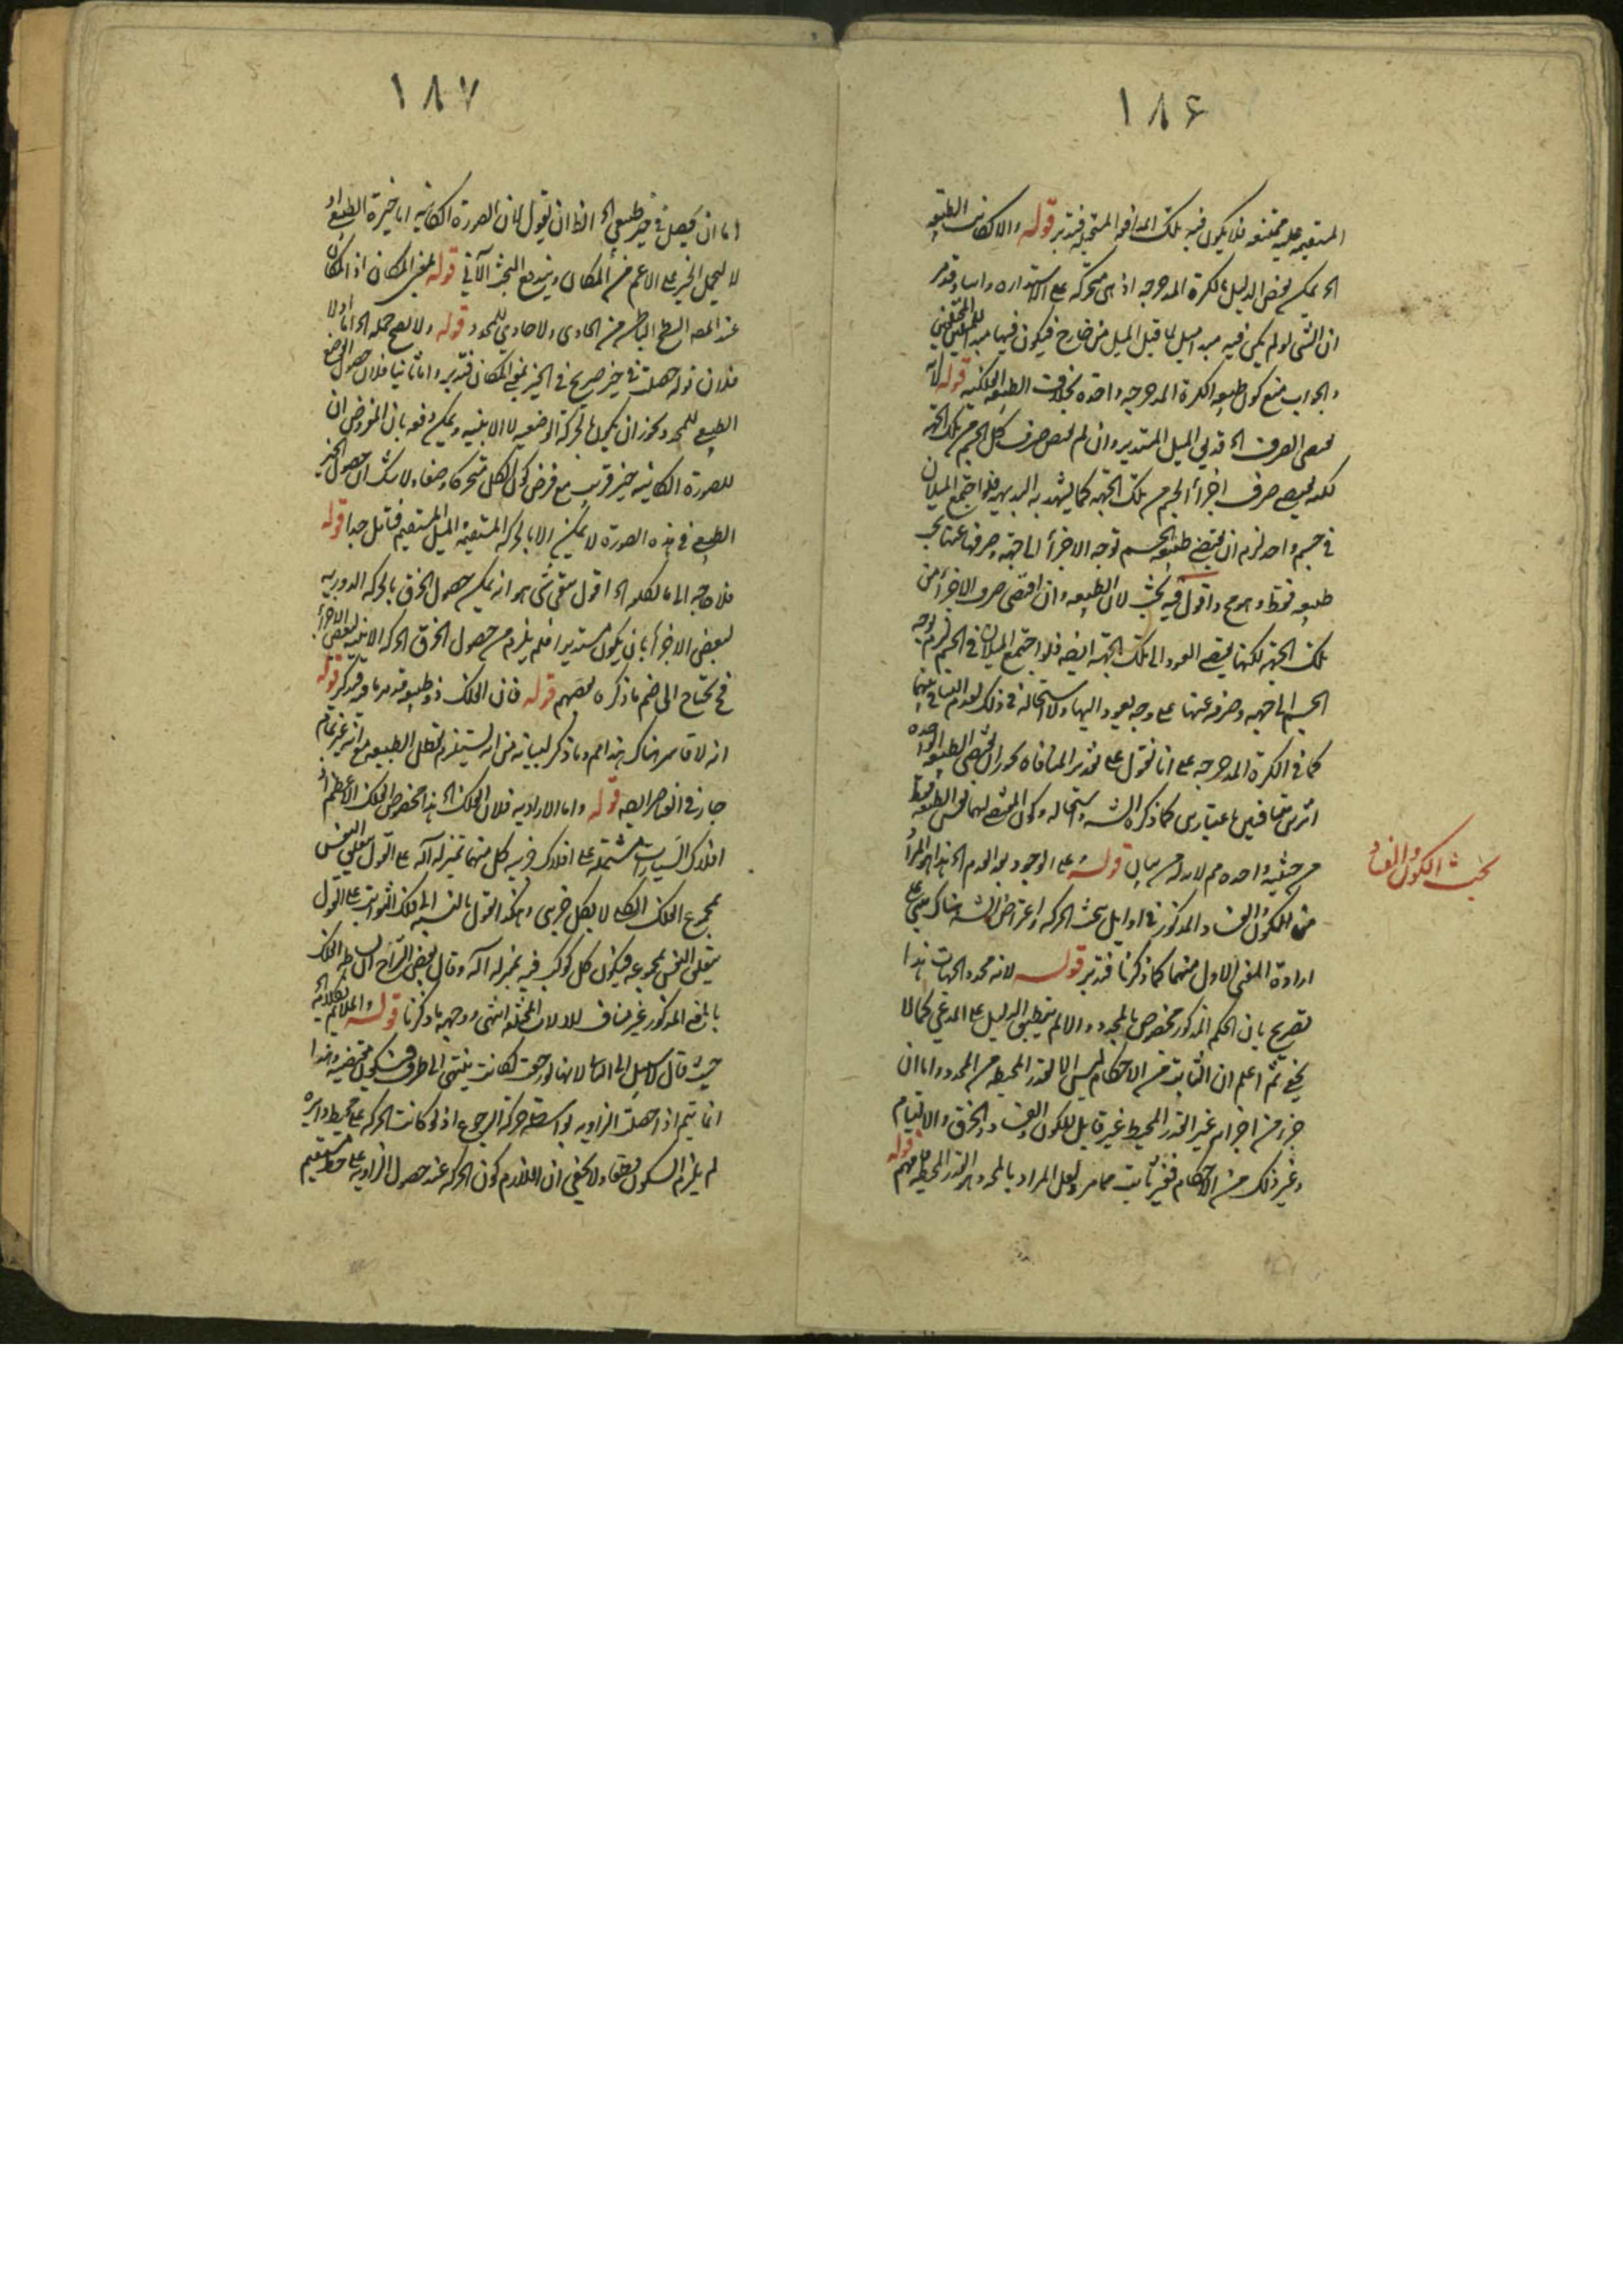 ١٨٦
المستقيمة عليه ممتنعه فلا يكون فيه تلك المدافعه المستحيله فتدبر قوله والا لكانت الطبيعه
الخ يمكن نقض الدليل بالكرة المدحرجه اذ هى متحركه على الاستداره
ان الشى لو لم يكن فيه مبدء ميل لما قبل الميل من خارج فيكون فيها مبدء
والجواب منع كون طبيعه الكرة المدحرجه واحده بخلاف الطبيعه الفلكيه قوله لانه
يقتضى الصرف الخ قد يق الميل المستدير وان لم يقتض صرف كل الجسم عن تلك الجهه
لكنه يقتضى صرف اجزاء الجسم عن تلك الجهه كما يشهد به البديهه فلو اجتمع الميلان
فى جسم واحد لزم ان يقتضى طبيعه الجسم توجه الاجزاء الى جهة وصرفها عنها
طبيعه فقط وهو مح واقول فيه بحث لان الطبيعه وان اقتضى صرف الاجزاء من
تلك الجهه لكنها يقتضى العود الى تلك الجهه ايضه فلو اجتمع الميلان فى الجسم لزم توجه
الجسم الى جهه وصرفه عنها على وجه يعود اليها ولا استحاله فى ذلك لعدم التنافى بينهما
كما فى الكرة المدحرجه على انا نقول على تقدير المنافاه يجوز ان يقتضى الطبيعه الواحده
اثرين متنافيين باعتبارين كما ذكره الش واستحاله وكون المقتضى لهما نفس الطبيعه فقط
من حيثيه واحده مم لا بد له من بيان قوله على الوجود بعد العدم الخ هذا هو المراد
من الكون والفساد المذكور فى اوايل بحث الحركه واعتراض الش هناك مبنى على
ارادة المعنى الاول منهما كما ذكرنا فتدبر قوله لانه محدد الجهات هذا
تصريح بان الحكم المذكور مخصوص بالمحدد والا لم ينطبق الدليل على المدعى كما لا
يخفى ثم اعلم ان الثابت من الاحكام ليس الا للقدر المحيط من المحدد واما ان
جزء من اجزائه غير القدر المحيط غير قابل للكون والفساد والخرق والالتيام
وغير ذلك من الاحكام فغير ثابت مما مر ولعل المراد بالمحدد هو القدر المحيط فافهم قوله
بحث الكون والفساد
١٨٧
اما ان يحصل فى حيز طبيعى الخ الظ ان يقول لان الصورة الكائنه اما حيزه الطبيعى او
لا ليحمل الحيز على الاعم من المكان ويندفع البحث الآتى قوله بمعنى المكان اذ المكان
عند المص السطح الباطن من الحاوى ولا حاوى للمحدد قوله ولا يصح حمله الخ اما اولا
فلان قوله حصلت فى حيز صريح فى الحيز بمعنى المكان فتدبر واما ثانيا فلان حصول الوضع
الطبيعى للمحدد يجوز ان يكون بالحركه الوضعيه لا الاينيه ويمكن دفعه بان المفروض ان
للصورة الكائنه حيز غريب مع فرض كون الكل متحركا وضعا ولا شك ان حصول الحيز
الطبيعى فى هذه الصورة لا يمكن الا بالحركه المستقيمه الميل المستقيم فتامل جدا قوله
فلا حاجه الى ما تكلفه الخ اقول بقى شى هو انه يمكن حصول الخرق بالحركه الدوريه
لبعض الاجزاء بان يكون مستديرا فلم يلزم من حصول الخرق الحركه الاينيه لبعض الاجزاء
فح يحتاج الى ضم ما ذكره بعضهم قوله فان الفلك ذو طبيعه قد مر ما فيه فتذكر قوله
انه لا قاسر هناك هذا مم وما ذكر لبيانه من انه يستلزم تعطل الطبيعه مع انه غير تمام
جار فى العناصر ايضه قوله واما الاراديه فلان الفلك الخ هذا مخصوص بالفلك الاعظم اذ
افلاك السيارات مشتمله على افلاك جزئيه كل منها بمنزله آله على القول بتعلق النفس
بمجموع الفلك الكلى لا بكل جزيى وهكذا القول بالنسبه الى فلك الثوابت على القول
بتعلق النفس بمجموعه فيكون كل كوكب فيه بمنزله آله وقال بعض الشراح ان بساطه الفلك
بالمعنى المذكور غير مناف للالات المختلفه انتهى ووجهه ما ذكرنا قوله الملائم لكلامه
حيث قال لا سبيل الى الثانى لانها لو رجعت لكانت ينتهى الى طرف فيكون مقتضيه وهذا
انما يتم اذا حصلت الزاويه بواسطه حركة الرجوع اذ لو كانت الحركه على محيط دايره
لم يلزم السكون قطعا ولا يخفى ان اللازم كون الحركه عند حصول الزاويه على خط مستقيم